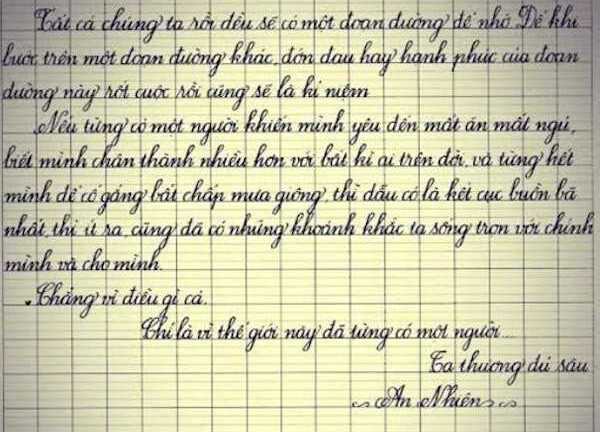 Tất cả chúng ta rồi đều sẽ có một đoạn đường để nhớ. Để khi
bước trên một đoạn đường khác, đớn đau hay hạnh phúc của đoạn
đường này rốt cuộc rồi cũng sẽ là kỉ niệm
Nếu từng có một người khiến mình yêu đến mất ăn mất ngủ,
biết mình chân thành nhiều hơn với bất kì ai trên đời, và từng hết
mình để cố gắng bất chấp mưa giông, thì dẫu có là kết cục buồn bã
nhất, thì ít ra, cũng đã có những khoảnh khắc ta sống trọn với chính
mình và cho mình.
Chẳng vì điều gì cả.
Chỉ là vì thế giới này đã từng có một người...
Ta thương đủ sâu
An Nhiên